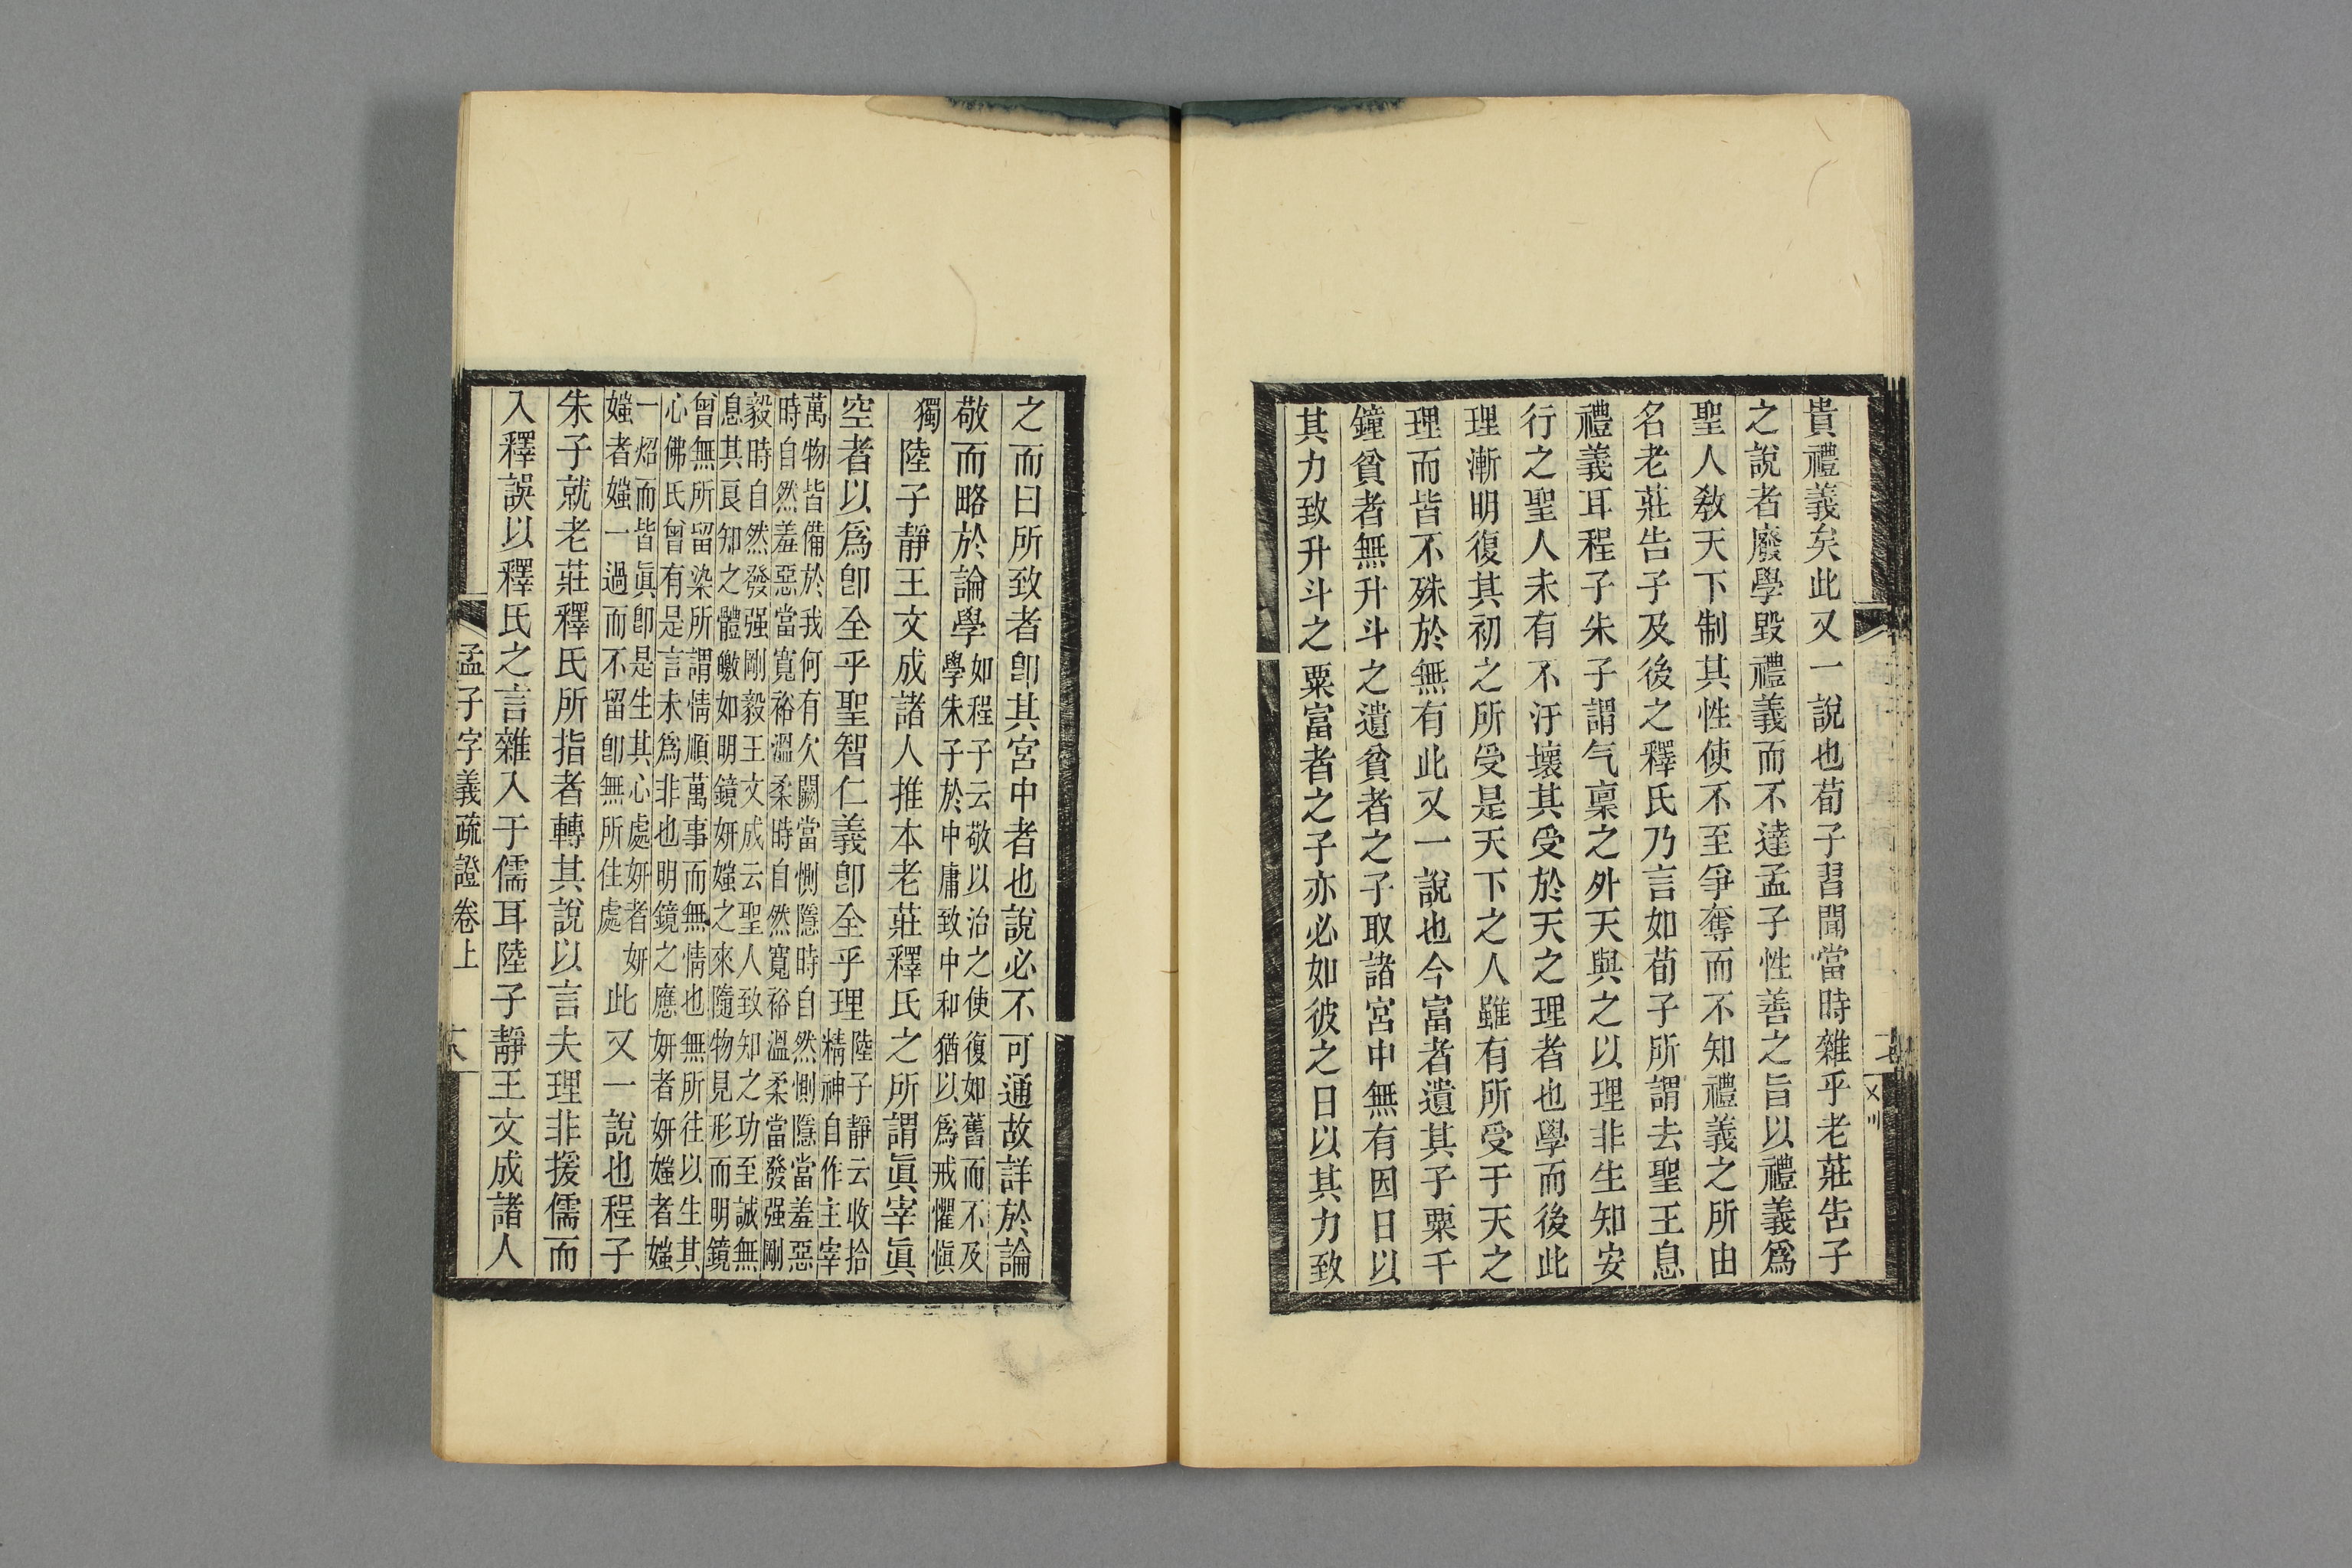 貴禮義矣此又一說也荀子習聞當時雜乎老莊告子
之說者廢學毀禮義而不達孟子性善之旨以禮義爲
聖人敎天下制其性使不至爭奪而不知禮義之所由
名老莊告子及後之釋氏乃言如荀子所謂去聖王息
禮義耳程子朱子謂气禀之外天與之以理非生知安
行之聖人未有不汙壞其受於天之理者也學而後此
理漸明復其初之所受是天下之人雖有所受于天之
理而皆不殊於無有此又一說也今富者遺其子粟千
鐘貧者無升斗之遺貧者之子取諸宮中無有因日以
其力致升斗之粟富者之子亦必如彼之日以其力致
之而曰所致者卽其宮中者也說必不可通故詳於論
敬而略於論學
如程子云敬以治之使復如舊而不及
學朱子於中庸致中和猶以爲戒懼愼
獨
陸子靜王文成諸人推本老莊釋氏之所謂眞宰眞
空者以爲卽全乎聖智仁義卽全乎理
陸子靜云收拾
精神自作主宰
萬物皆備於我何有欠闕當惻隱時自然惻隱當羞惡
時自然羞惡當寬裕溫柔時自然寬裕溫柔當發强剛
毅時自然發强剛毅王文成云聖人致知之功至誠無
息其良知之體皦如明鏡妍媸之來隨物見形而明鏡
曾無所留染所謂情順萬事而無情也無所往以生其
心佛氏曾有是言未爲非也明鏡之應妍者妍媸者媸
一炤而皆眞卽是生其心處妍者妍
媸者媸一過而不留卽無所住處
此又一說也程子
朱子就老莊釋氏所指者轉其說以言夫理非援儒而
入釋誤以釋氏之言雜入于儒耳陸子靜王文成諸人
孟子字義疏證卷上